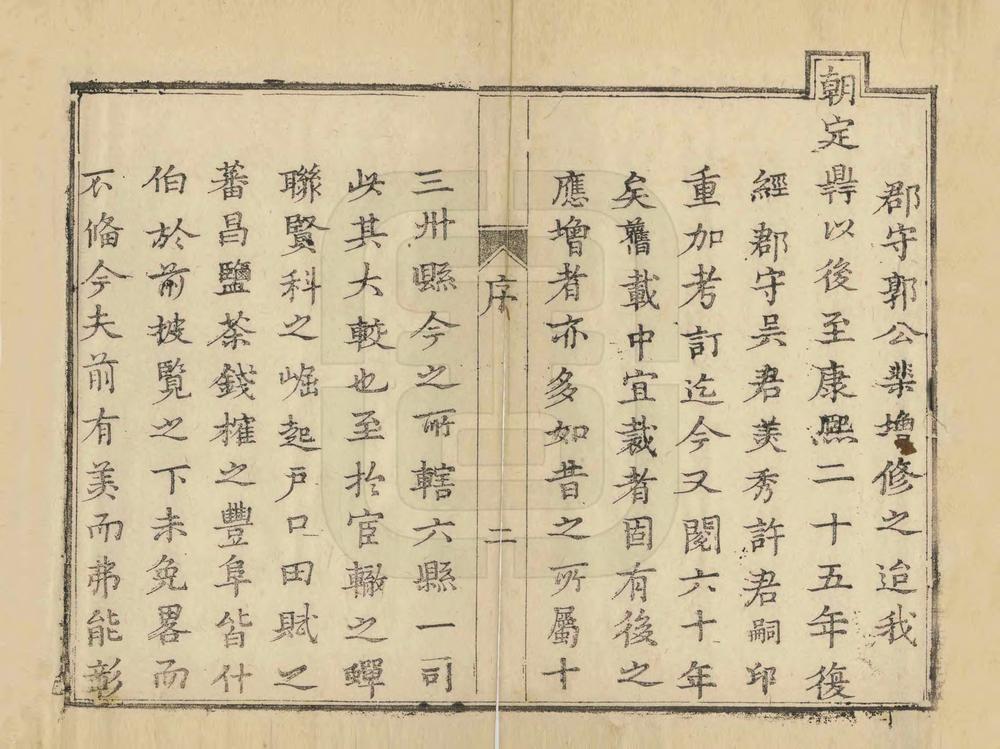 郡守郭公棐增修之迨我
朝定鼎以後至康熙二十五年復
經郡守吳君美秀許君嗣印
重加考訂迄今又閱六十年
矣舊載中宜裁者固有後之
應增者亦多如昔之所屬十
序 二
三州縣今之所轄六縣一司
此其大較也至於宦轍之蟬
聯賢科之崛起戸口田賦之
蕃昌鹽茶錢榷之豐阜皆什
伯於前披覽之下未免畧而
不備今夫前有美而弗能彰